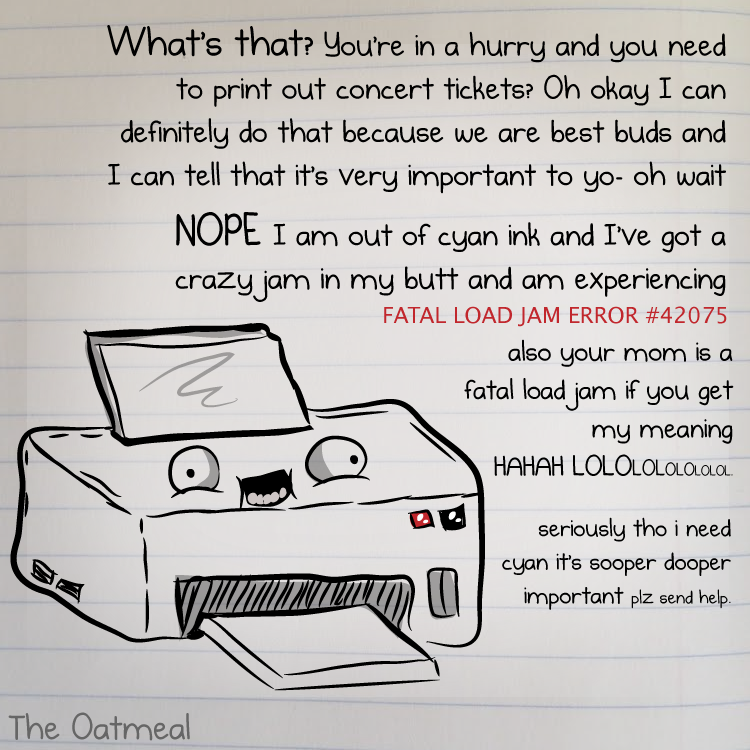 What's that? You're in a hurry and you need
to print out concert tickets? Oh okay I can
definitely do that because we are best buds and
I can tell that it's very important to yo- oh wait
NOPE I am out of cyan ink and I've got a
crazy jam in my butt and am experiencing
FATAL LOAD JAM ERROR #42075
also your mom is a
fatal load jam if you get
my meaning
HAHAH LOLOLOLOLOLOLOL.
seriously tho i need
cyan it's sooper dooper
important plz send help.
The Oatmeal